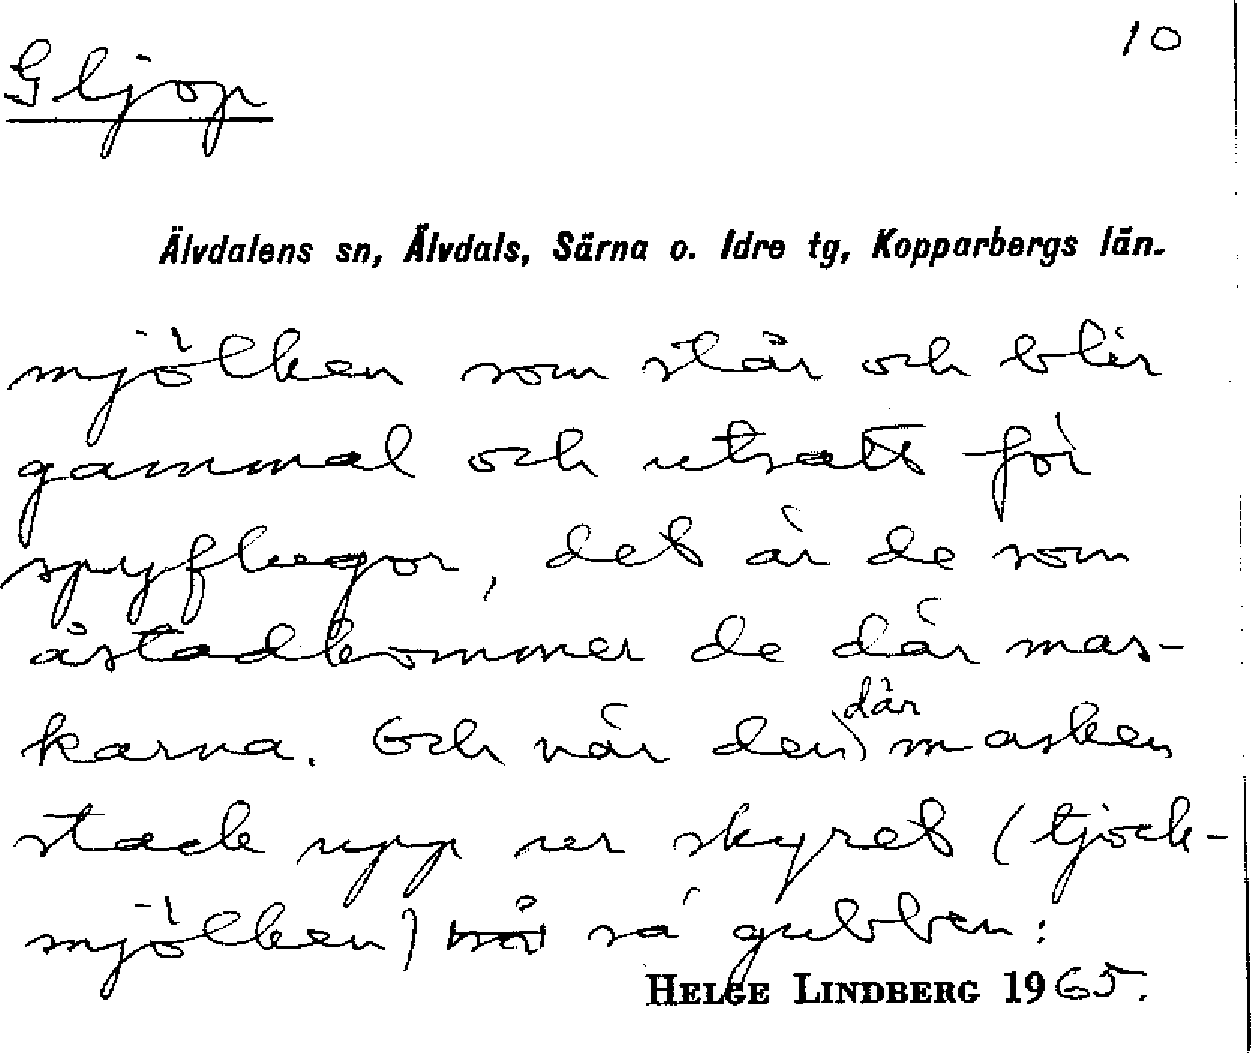 10
Gljop
Älvdalens sn, Älvdals, Särna o. Idre tg, Kopparbergs län.
mjölken som står och blir
gammal och utsatt för
spyflugor, det är de som
åstadkommer de där mas-
karna. Och när den där masken
stack upp ur skyret (tjöck-
mjölken) så gubben:
HELGE LINDBERG 1965.